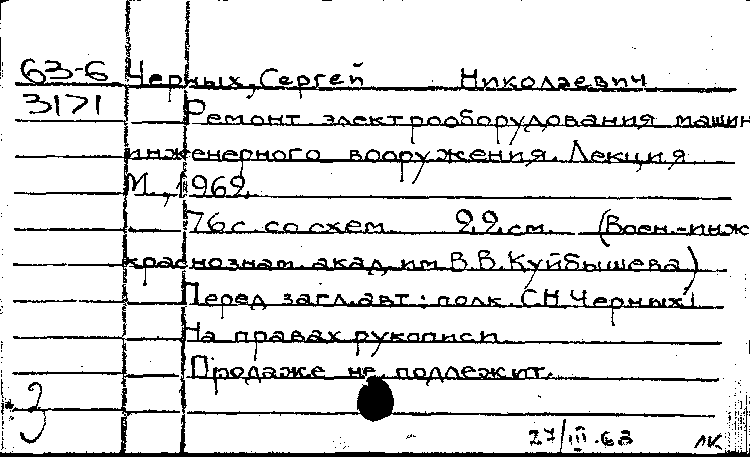 63-6 Черных, Сергей Николаевич
3171 Ремонт электрооборудования машин
инженерного вооружения. Лекция
М., 1962.
76 с. со схем. 22 см. (Воен.-инж.
краснознам. акад. им. В.В. Куйбышева)
Перед загл. авт: полк. С.Н. Черных
На правах рукописи
Продаже не подлежит.
3
27/III-63 ЛК